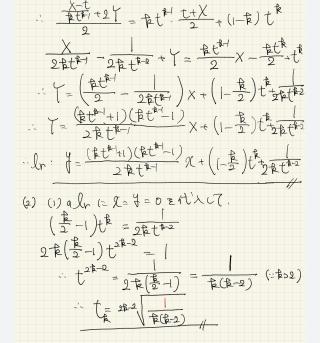 ∴ (X-t / kt^{k-1} + 2Y) / 2 = kt^{k-1} · (t+X)/2 + (1-k)t^k
X/2kt^{k-1} - 1/2kt^{k-2} + Y = kt^{k-1}/2 X - kt^k/2 + t^k
∴ Y = (kt^{k-1}/2 - 1/2kt^{k-1}) X + (1 - k/2)t^k + 1/2kt^{k-2}
∴ Y = (kt^{k-1}+1)(kt^{k-1}-1)/2kt^{k-1} X + (1 - k/2)t^k + 1/2kt^{k-2}
∴ ln: y = (kt^{k-1}+1)(kt^{k-1}-1)/2kt^{k-1} x + (1 - k/2)t^k + 1/2kt^{k-2}
(2) (1)のlnにx=y=0を代入して.
(k/2 - 1)t^k = 1/2kt^{k-2}
2k(k/2 - 1)t^{2k-2} = 1
∴ t^{2k-2} = 1/2k(k/2 - 1) = 1/k(k-2) (∵k>2)
∴ t_k = ^{2k-2}√(1/k(k-2))